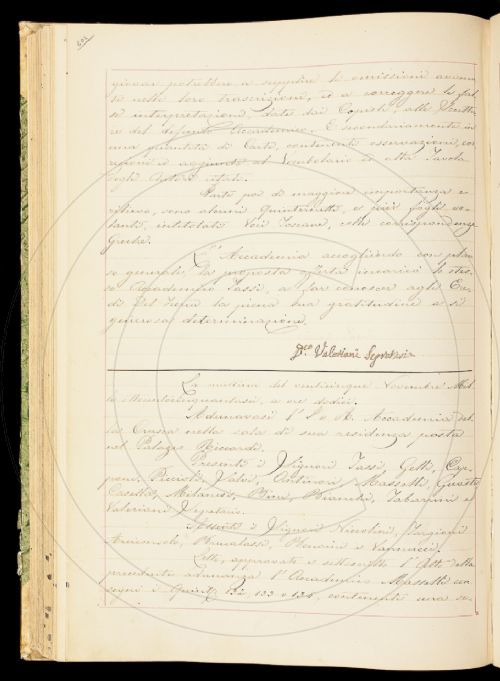 giovar potrebbero a supplire le omissioni avvenu-
te nelle loro trascrizioni, ed a correggere le fal-
se interpretazioni, date dai Copisti, alle Scrittu-
re del defunto Accademico. E secondariamente in
una quantità di Carte, contenenti osservazioni, cor-
rezioni ed aggiunte al Vocabolario ed alla Tavola
degli Autori citati.
Parte poi di maggiore importanza e
rilievo, sono alcuni Quinternetti, e vari fogli vo-
lanti, intitolati Voci Toscane, colle corrispondenze
Greche.
L'Accademia accogliendo con plau-
so generale, la proposta offerta incaricò lo stes-
so Accademico Tassi, a far conoscere agli Ere-
di Del Furia la piena sua gratitudine a sì
generosa determinazione.
Valeriani Segretario
La mattina del venticinque Novembre Mil-
leottocentocinquantasei, a ore dodici.
Adunavasi l'I. e R. Accademia del-
la Crusca nella sala di sua residenza posta
nel Palazzo Riccardi.
Presenti i Signori Tassi, Gelli, Cap-
poni, Puccioti, Salvi, Contrucci, Massetti, Guasti
Casella, Milanesi, Bianchi, Tabarrini e
Valeriani Segretario.
Assenti i Signori Nicolini, Targioni
Arcangeli, e Vannucci.
Letti, approvati e sottoscritti l'Atti della
precedente adunanza l'Accademico Massetti con
segnò i Quint. 132 133 e 134, contenenti una se-